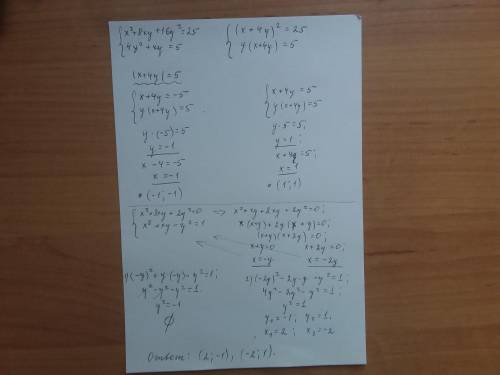 { x² + 8xy + 16y² = 25
4y² + xy = 5
{ (x + 4y)² = 25
y(x+4y) = 5
|x+4y| = 5
{ x+4y = -5
y(x+4y) = 5
y·(-5) = 5
y = -1
x - 4 = -5
x = -1
• (-1; -1)
{ x+4y = 5
y(x+4y) = 5
y·5 = 5;
y = 1;
x+4 = 5;
x = 1
• (1; 1)
{ x² + 3xy + 2y² = 0 => x² + xy + 2xy + 2y² = 0;
x² + xy - y² = 1
x(x+y) + 2y(x+y) = 0;
(x+y)(x+2y) = 0;
x+y=0 x+2y = 0;
x = -y x = -2y
(-y)² + y·(-y) - y² = 1;
y² - y² - y² = 1
y² = -1
∅
2) (-2y)² - 2y·y - y² = 1;
4y² - 2y² - y² = 1;
y² = 1
y₁ = -1; y₂ = 1.
x₁ = 2; x₂ = -2
Ответ: (2; -1), (-2; 1).